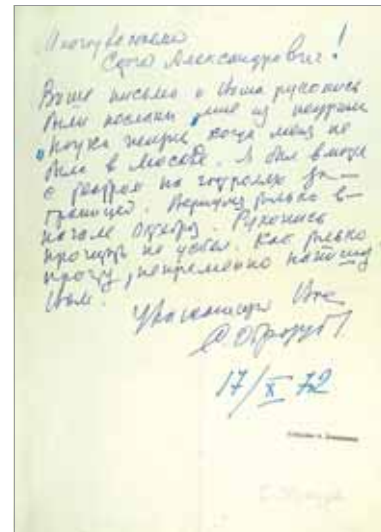 Многоуважаемый
Александрович!
Ваше письмо и Ваша рукопись
были посланы мне из
когда меня не
было в Москве. Я был
с театром на гастролях за-
границей. Вернулся только в
начале Октября. Рукопись
прочитать не успел. Как только
прочту, непременно напишу
Вам.
Уважающий Вас
С Образцов
17/X 72